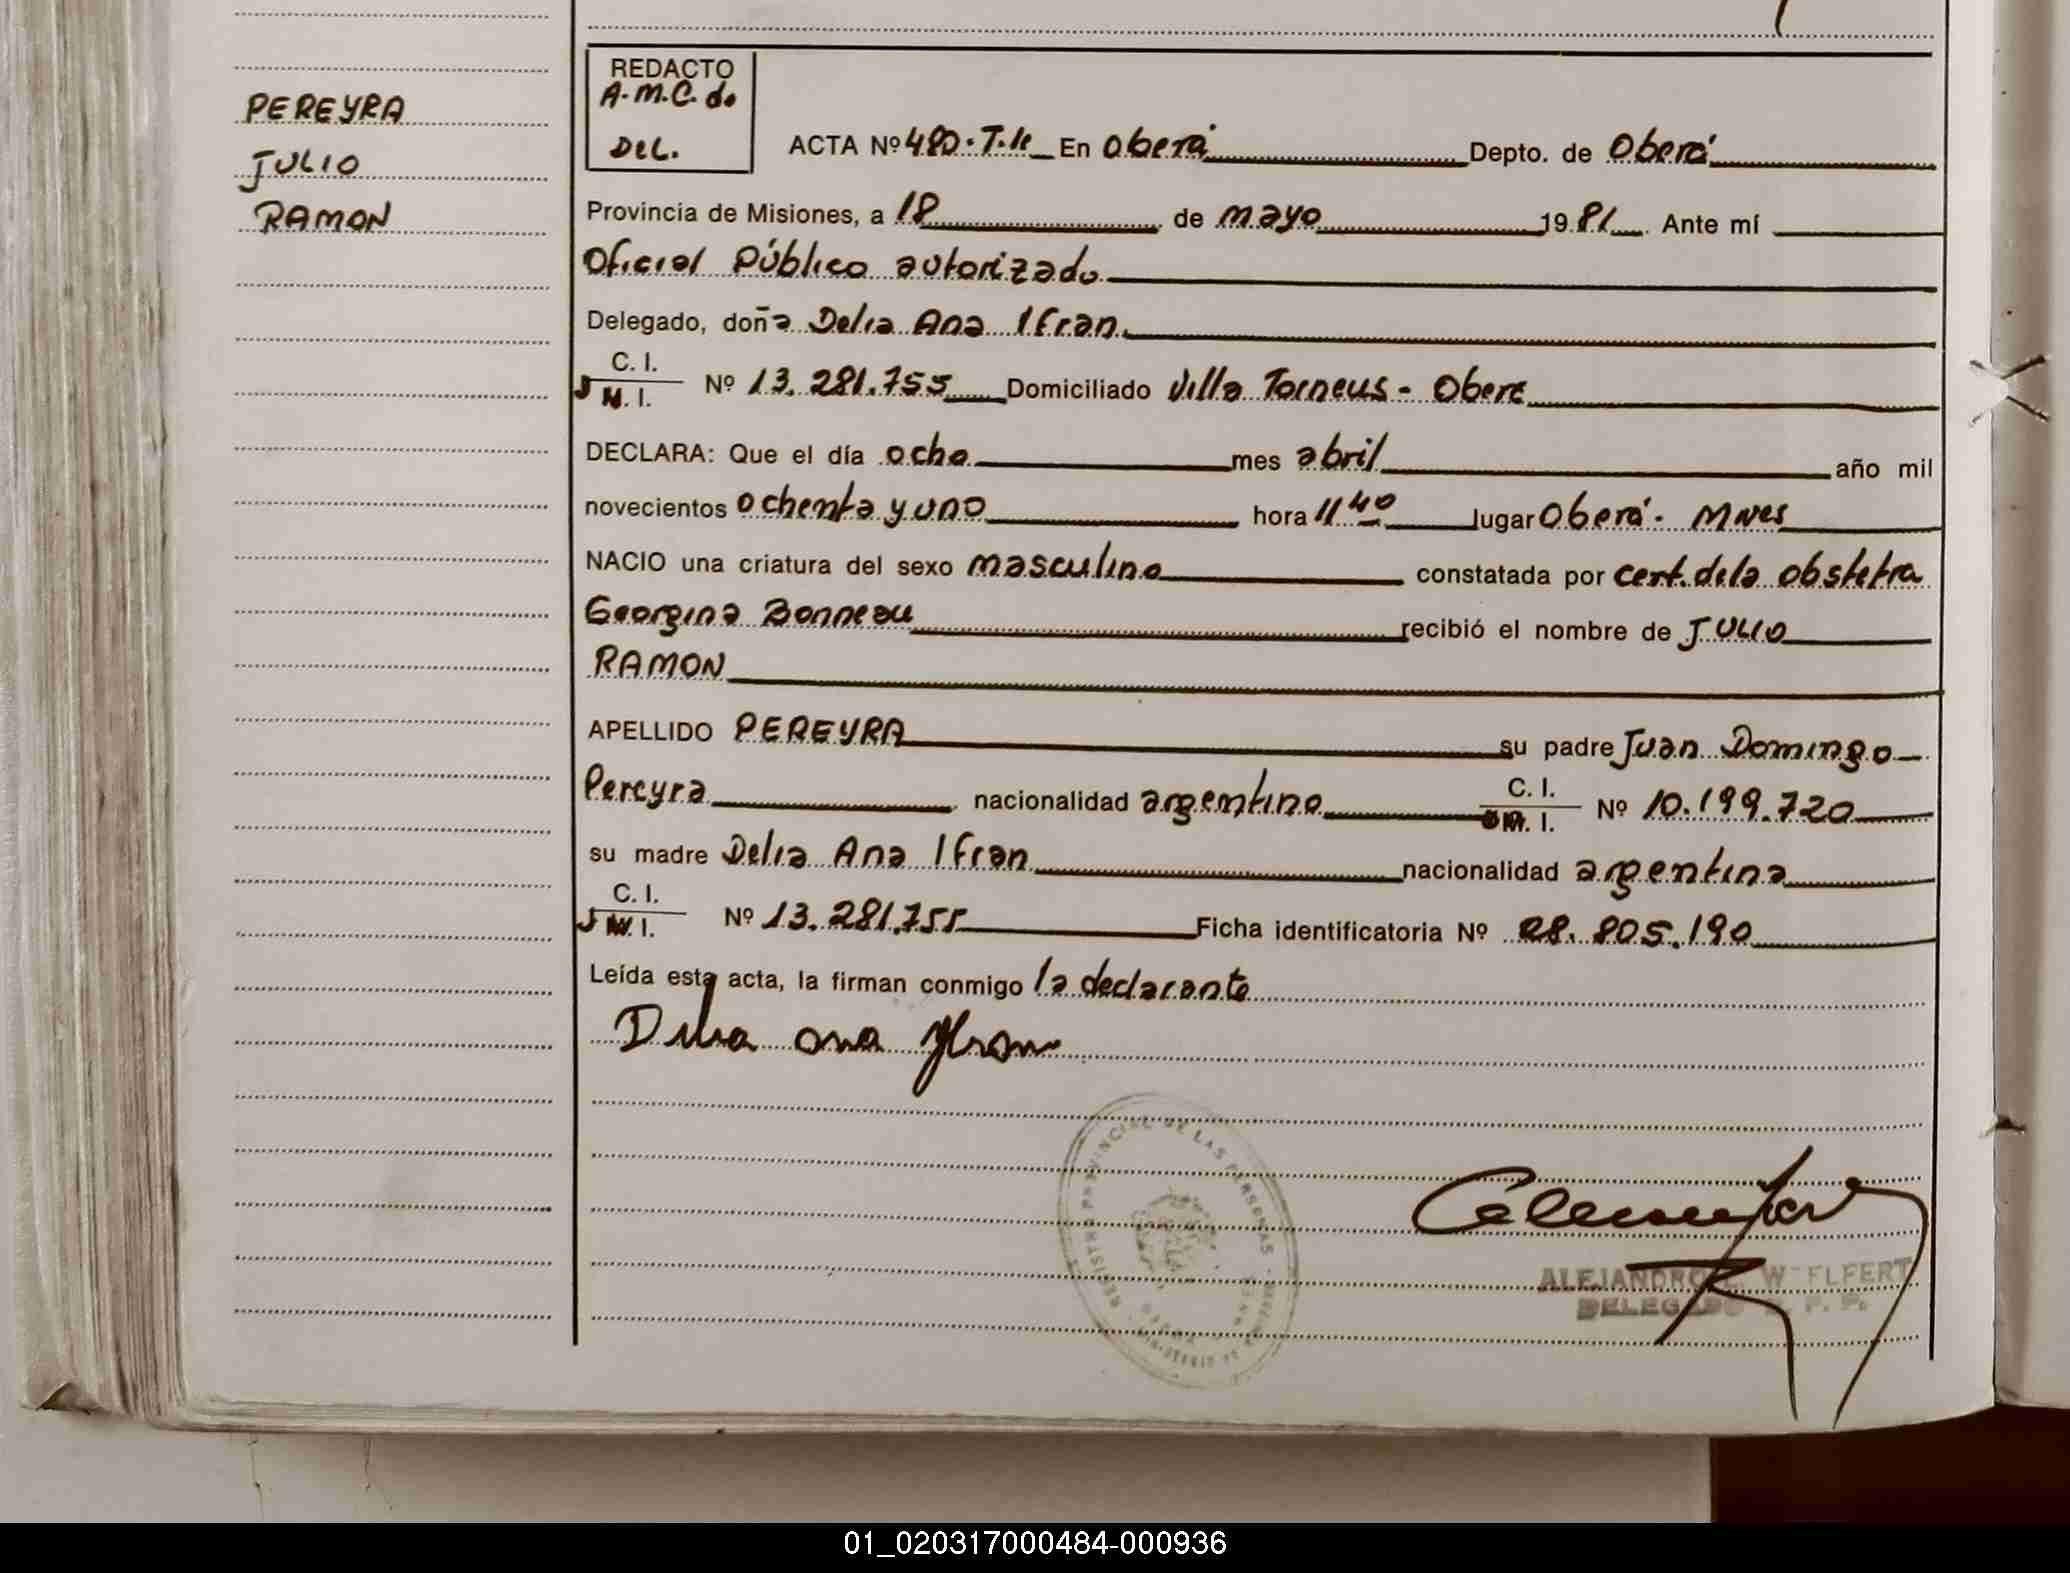 PEREYRA
JULIO
RAMON
REDACTO
A.M.C. de
DEL.
ACTA Nº 480-T.II En Oberá Depto. de Oberá
Provincia de Misiones, a 18 de mayo 1981. Ante mí
Oficial Público autorizado
Delegado, doña Delia Ana Ifran
C. I.
M. I. Nº 13.281.755 Domiciliado Villa Torneus - Obera
DECLARA: Que el día ocho mes abril año mil
novecientos ochenta y uno hora 11 40 lugar Oberá - Mnes
NACIO una criatura del sexo masculino constatada por cert. de la obstetra
Georgina Bonneau recibió el nombre de JULIO
RAMON
APELLIDO PEREYRA su padre Juan Domingo
Pereyra nacionalidad argentino C. I. M. I. Nº 10.199.720
su madre Delia Ana Ifran nacionalidad argentina
C. I.
M. I. Nº 13.281.755 Ficha identificatoria Nº 28.805.190
Leída esta acta, la firman conmigo la declarante
Delia ana Ifran
REGISTRO PROVINCIAL DE LAS PERSONAS
ALEJANDRO WELFERT
DELEGADO R. P. P.
01_020317000484-000936